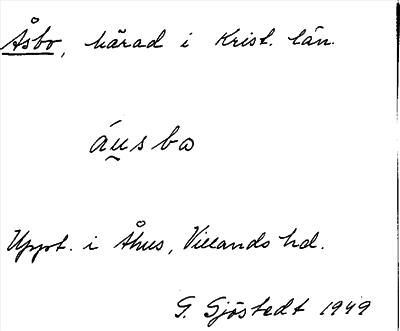 Åsbo, härad i Krist. län.
áu̯sba
Uppt. i Åhus, Villands hd.
G. Sjöstedt 1949